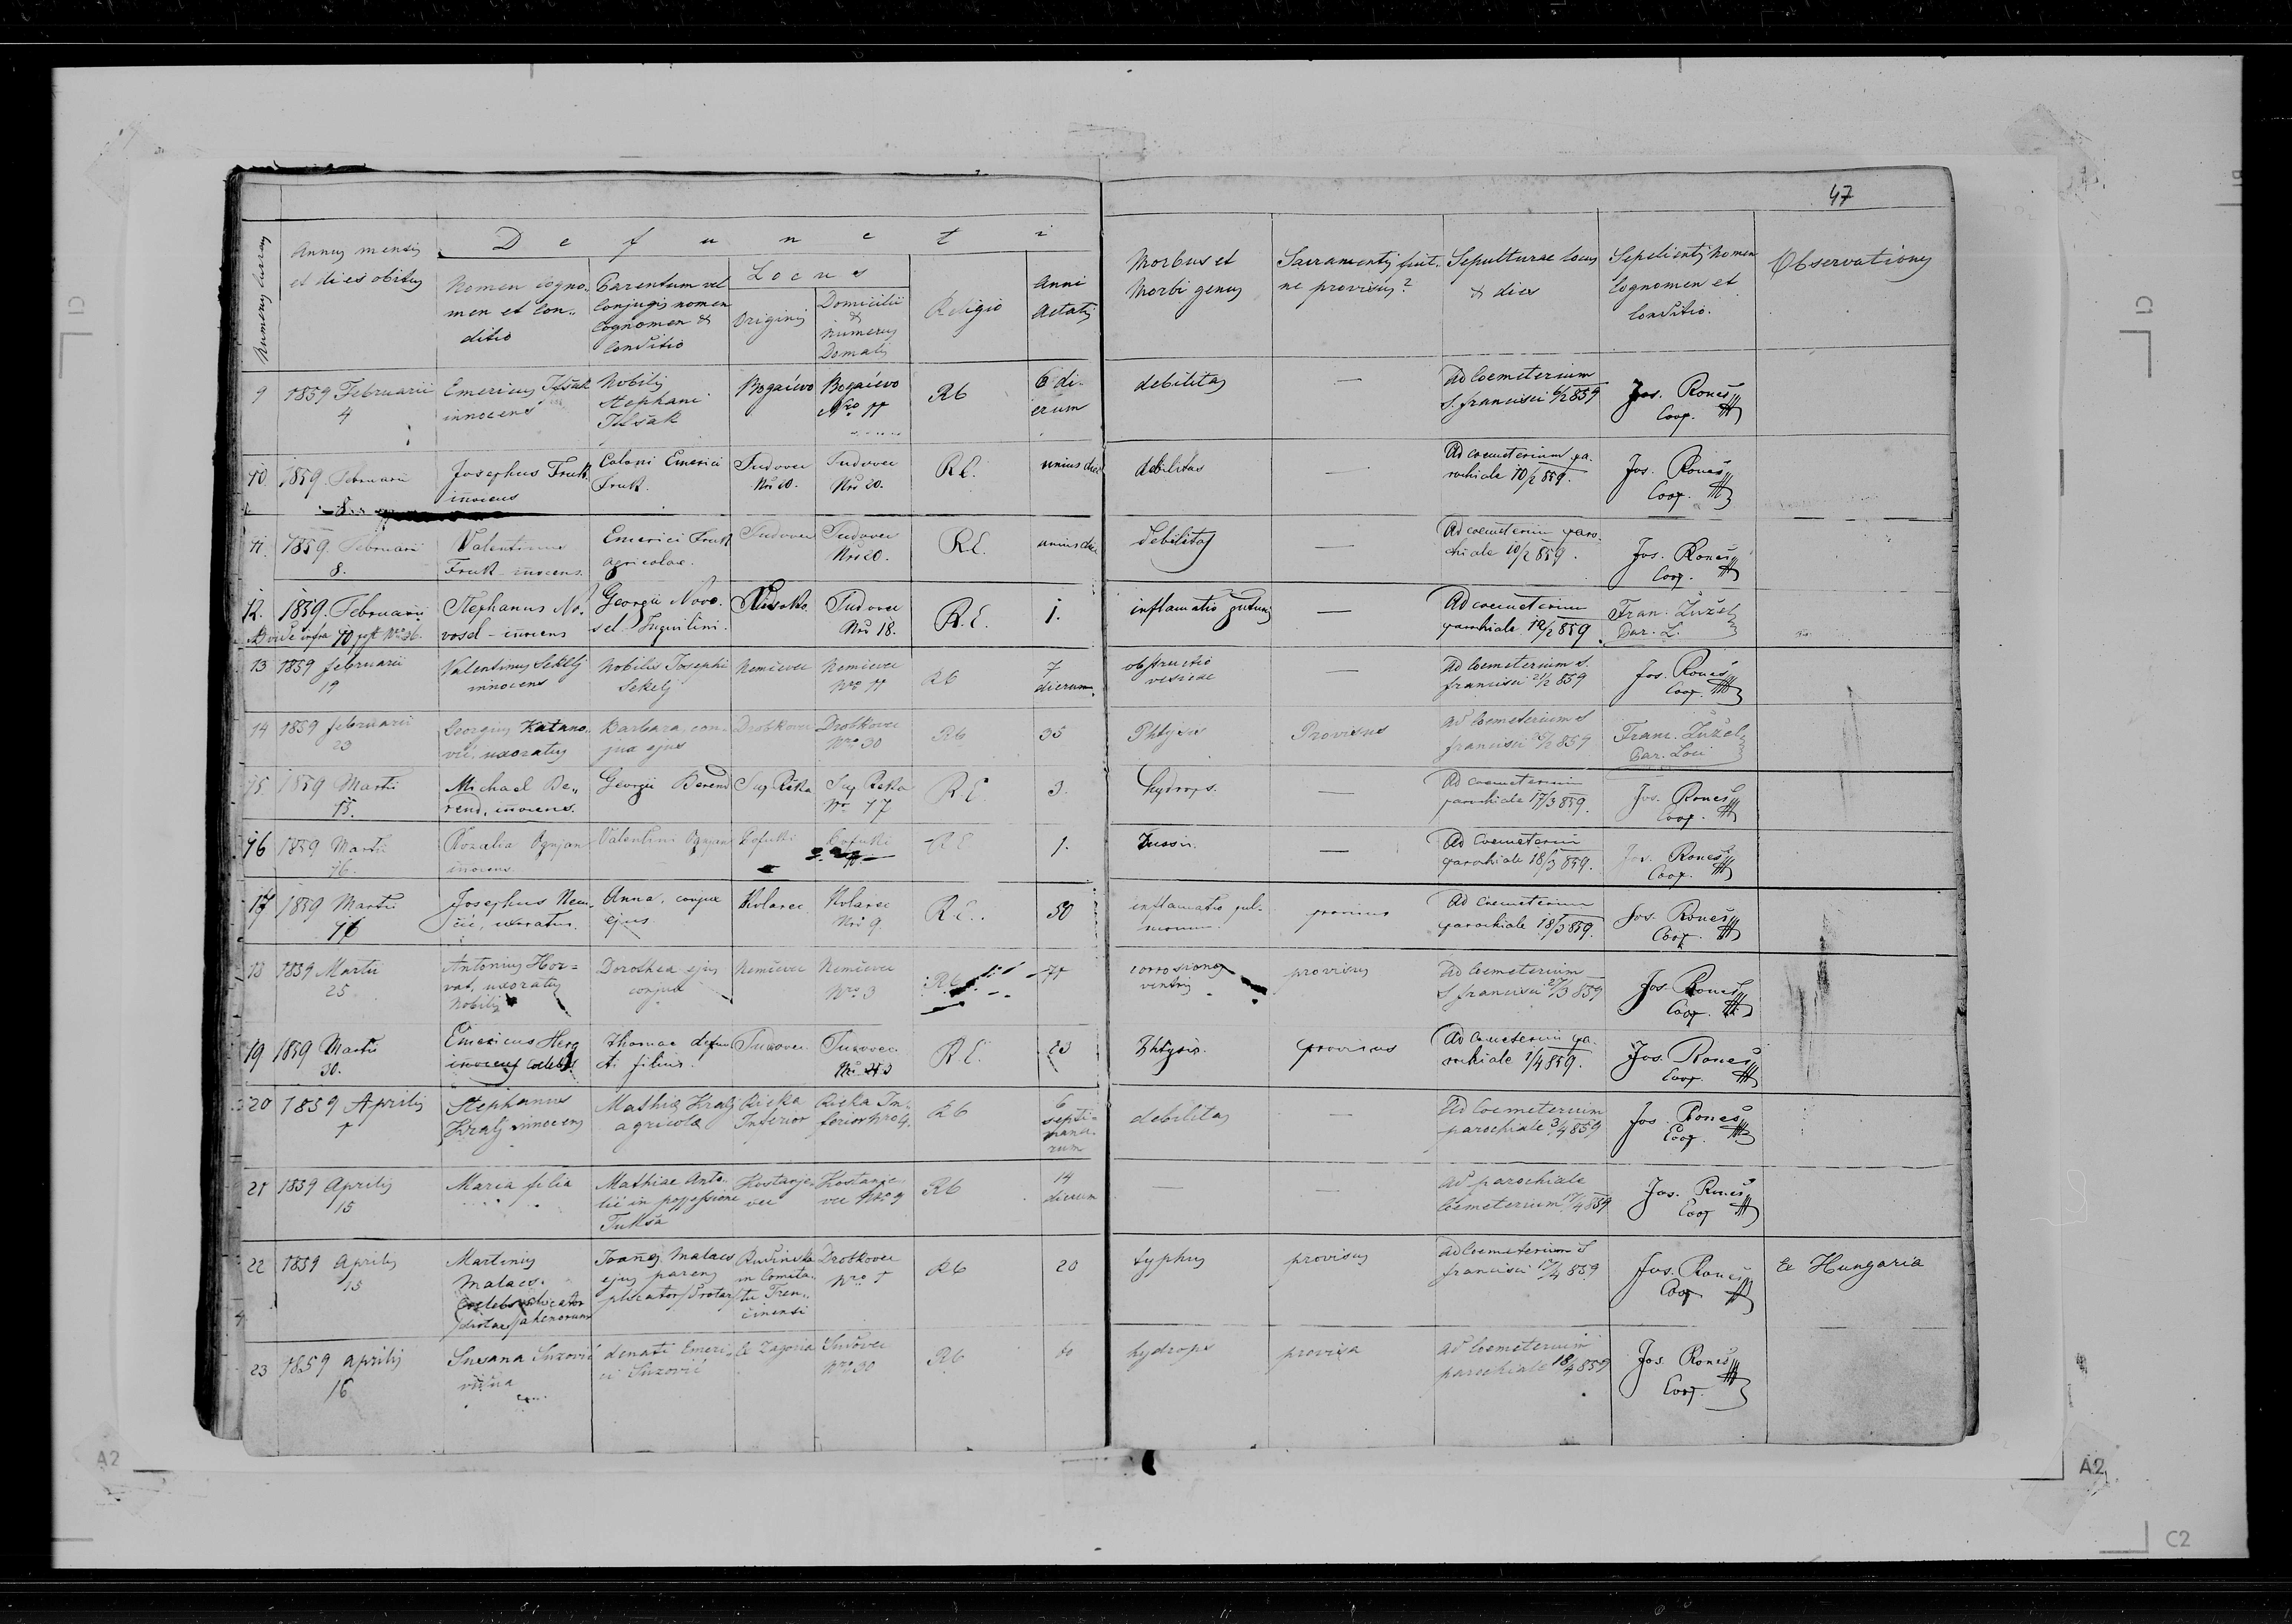 47
Numerus currens
Annus mensis
et dies obitus
Defuncti
Nomen cogno-
men et con-
ditio
Parentum vel
conjugis nomen
cognomen &
conditio
Locus
Originis
Domicilii
&
numerus
Domus
Religio
Anni
aetatis
Morbus et
Morbi genus
Sacramentis fuit-
ne provisus?
Sepulturae locus
& dies
Sepelientis Nomen
Cognomen et
Conditio.
Observationes
9 1859 Februarii
4
Emericus Ilšak
innocens
Nobilis
Stephani
Ilšak
Bogačevo
Bogačevo
Nro 11
RC
6 di-
erum
debilitas
—
Ad Coemeterium
S. francisci 6/2 859
Jos. Roneš
Coop.
10. 1859. Februarii
8.
Josephus Fruk
innocens
Coloni Emerici
Fruk.
Tudovec
Nro 20.
Tudovec
Nro 20.
R.C.
unius diei
debilitas
—
Ad coemeterium pa-
rochiale 10/2 859.
Jos. Roneš
Coop.
11. 1859. Februarii
8.
Valentinus
Fruk innocens.
Emerici Fruk
agricolae.
Tudovec
Tudovec
Nro 20.
R.C.
unius diei
debilitas
—
Ad coemeterium paro-
chiale 10/2 859.
Jos. Roneš
Coop.
12. 1859. Februarii
Stephanus No-
vosel innocens
Georgii Novo-
sel Inquilini.
Tudovec
Nro 18.
R.C.
1.
inflamatio
—
Ad coemeterium
parochiale 12/2 859.
Fran. Žužel
Par. L.
13 1859 februarii
19
Valentinus Sekelj
innocens
Nobilis Josephi
Sekelj
Nemčevec
Nemčevec
Nro 11
RC
7
dierum.
obstructio
vesicae
—
Ad Coemeterium S.
francisci 21/2 859
Jos. Roneš
Coop.
14 1859 februarii
23
Georgius Katano-
vić, uxoratus
Barbara con-
jux ejus
Drobkovec
Drobkovec
Nro 30
RC
35
Phtysis
Provisus
Ad Coemeterium S
francisci /2 859
Franc. Žužel
Par. Loci
15. 1859 Martii
15.
Michael Be-
rend, innocens.
Georgii Berend
Sup. Rěka
Sup Rěka
Nro 17
R.C.
3.
hydrops.
—
Ad coemeterium
parochiale 17/3 859.
Jos. Roneš
Coop.
16 1859 Martii
16.
Rozalia Ognjan
innocens
Valentini Ognjan
R.C.
1.
Tussis.
—
Ad Coemeterium
parochiale 18/3 859.
Jos. Roneš
Coop.
17 1859 Martii
16
Josephus Nem-
čić, uxoratus.
Anna, conjux
ejus.
Kolarec
Kolarec
Nro 9.
R.C.
50
inflamatio pul-
monum
provisus
Ad Coemeterium
parochiale 18/3 859.
Jos. Roneš
Coop.
18 1859 Martii
25
Antonius Hor-
vat, uxoratus
Nobilis
Dorothea ejus
conjux
Nemčevec
Nemčevec
Nro 3
RC
corrosiones
ventris
provisus
Ad Coemeterium
S francisci 27/3 859
Jos. Roneš
Coop.
19 1859 Martii
30.
Emericus Herg
innocens coelebs
Thomae defunc-
ti filius.
Tuxovec
Tuxovec
R.C.
23
Phtysis.
provisus
Ad Coemeterium pa-
rochiale 1/4 859.
Jos. Roneš
Coop.
20 1859 Aprilis
1
Stephanus
Kralj innocens
Mathiæ Kralj
agricolæ
Rieka
Inferior
Rieka In-
ferior Nro 4.
RC
6
septi-
mana-
rum
debilitas
—
Ad Coemeterium
parochiale 3/4 859
Jos. Roneš
Coop.
21 1859 Aprilis
15
Maria filia
Mathiae Anto-
lić in possessione
Tukša
Kostanje-
vec
Kostanje-
vec Nro 9
RC
14
dierum
—
—
Ad parochiale
Coemeterium 17/4 859
Jos. Roneš
Coop
22 1859 Aprilis
15
Martinus
Malaco.
Joannes Malaco
ejus parens
in Comita-
tu Tren-
činensi
Drobkovec
Nro 1
RC
20
typhus
provisus
Ad Coemeterium S
francisci 17/4 859
Jos. Roneš
Coop
Ex Hungaria
23 1859 Aprilis
16
Susana Suzović
vidua
denati Emeri-
ci Suzović
Ex Zagoria
Tudovec
Nro 30
RC
hydrops
provisa
Ad Coemeterium
parochiale 18/4 859
Jos. Roneš
Coop.
A2
A2
C1
C1
C2